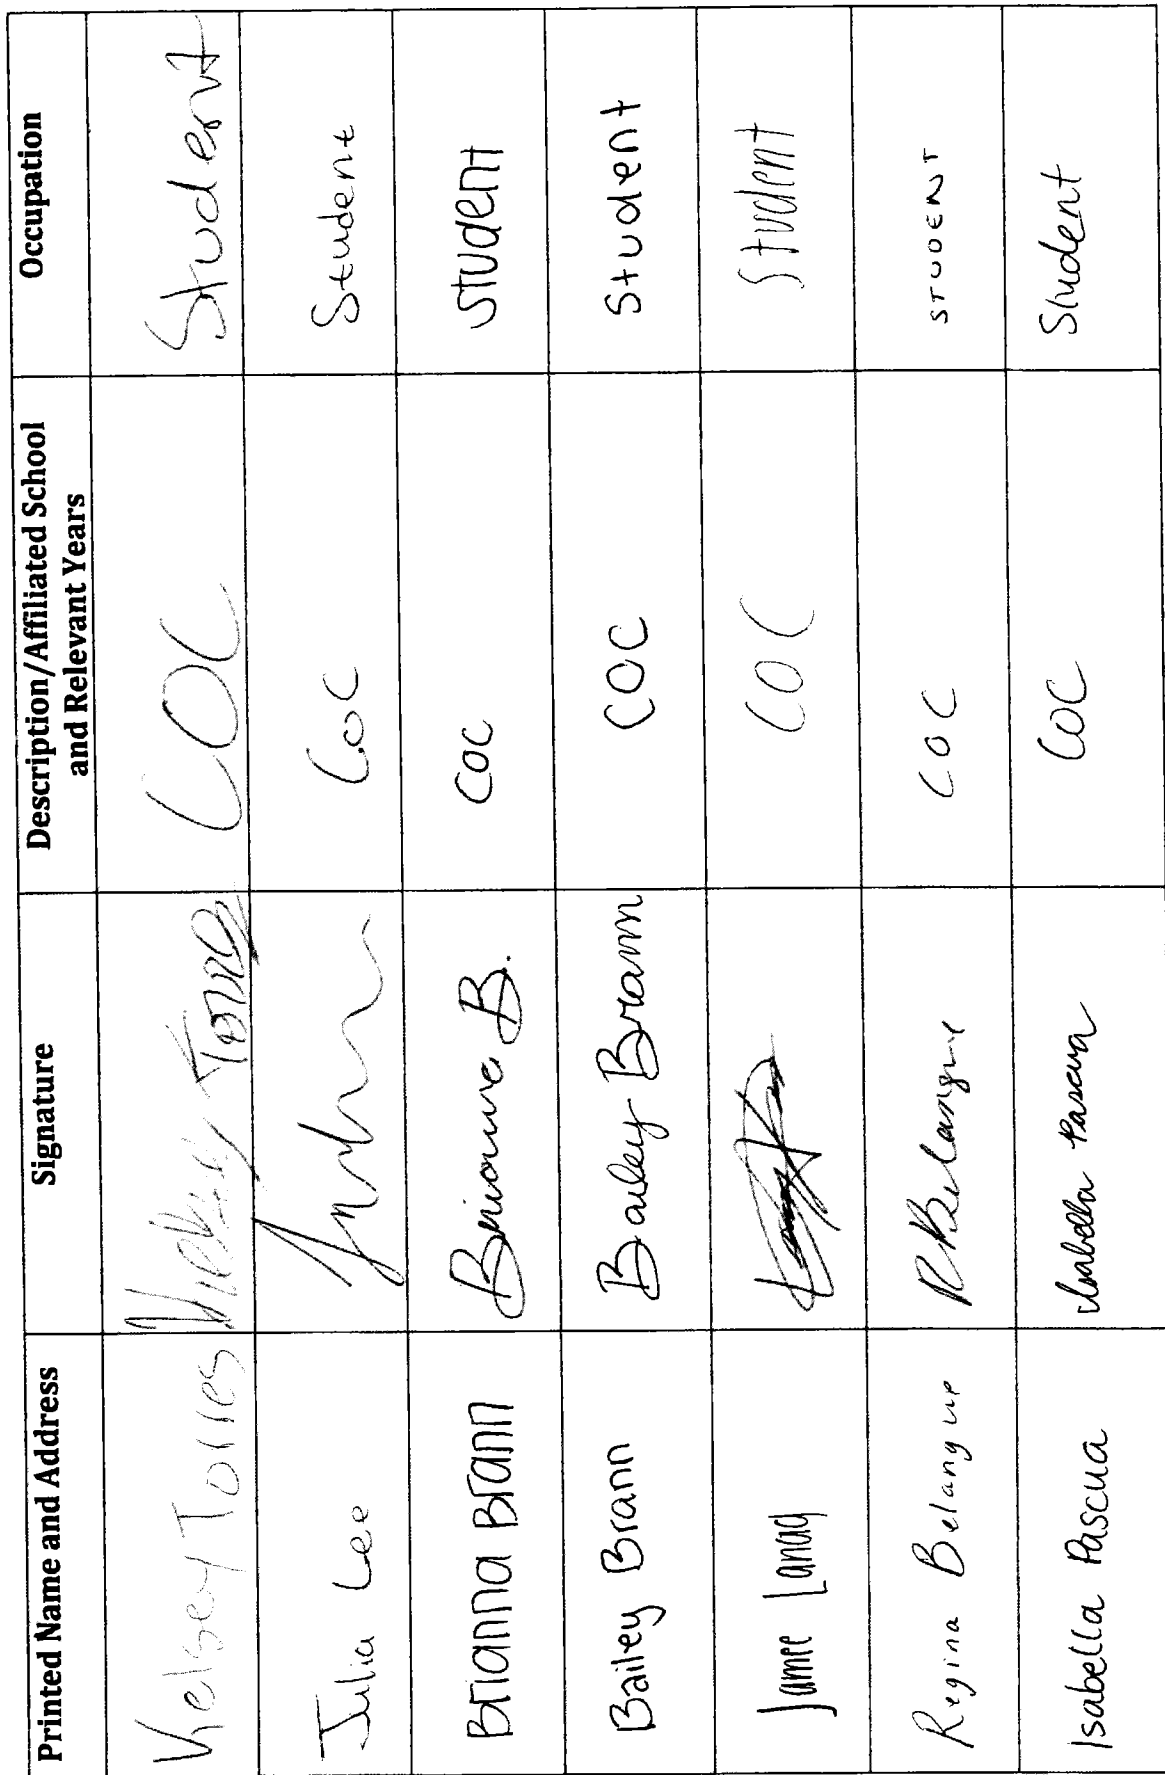 Printed Name and Address
Signature
Description/Affiliated School
and Relevant Years
Occupation
Kelsey Torres
Kelsey Torres
COC
Student
Julia Lee
COC
Student
Brianna Brann
Brianna B.
COC
Student
Bailey Brann
Bailey Brann
COC
Student
Jamee Lanag
COC
Student
Regina Belangue
RBelangue
COC
STUDENT
Isabella Pascua
Isabella Pascua
COC
Student